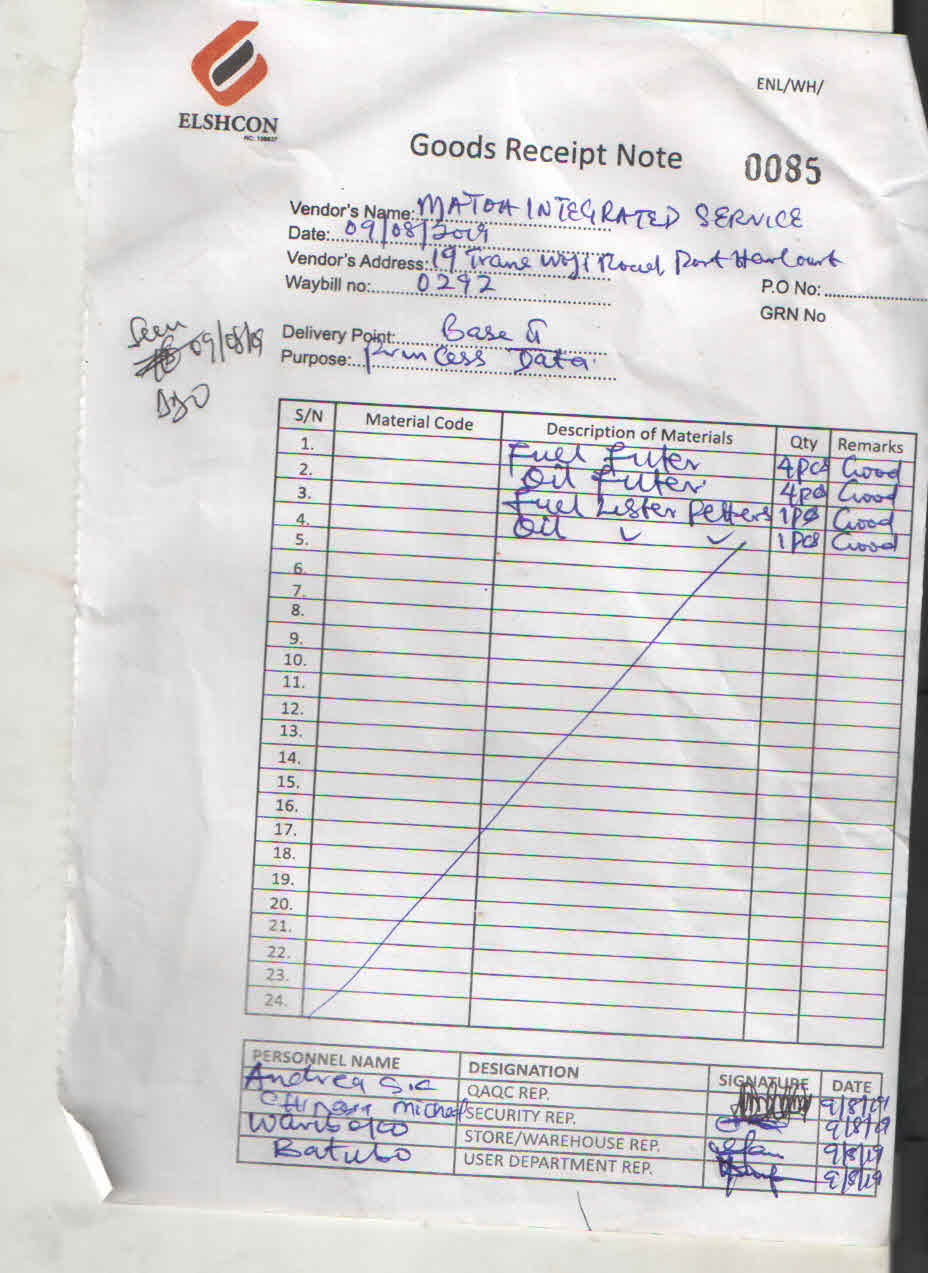 ELSHCON
ENL/WH/
Goods Receipt Note 0085
Vendor's Name: MATOH INTEGRATED SERVICE
Date: 09/08/2019
Vendor's Address: 19 Trans Woji Road, Port Harcourt
Waybill no: 0292
P.O No:
GRN No
Delivery Point: Base
Purpose: Princess Data
Seen
09/08/19
S/N Material Code Description of Materials Qty Remarks
1. Fuel Filter 4pcs Good
2. Oil Filter 4pcs Good
3. Fuel Lister Petters 1pcs Good
4. Oil 1pcs Good
5.
6.
7.
8.
9.
10.
11.
12.
13.
14.
15.
16.
17.
18.
19.
20.
21.
22.
23.
24.
PERSONNEL NAME DESIGNATION SIGNATURE DATE
Andrea QAQC REP. 9/8/19
Michael SECURITY REP. 9/8/19
Wariboko STORE/WAREHOUSE REP. 9/8/19
Batubo USER DEPARTMENT REP. 9/8/19